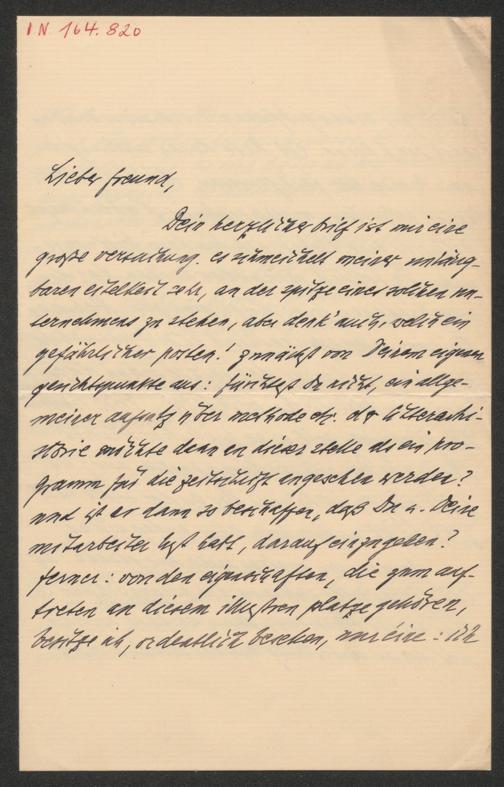 IN 164.820
Lieber freund,
Dein herzlicher brief ist mir eine
große versuchung. es schmeichelt meiner unläug-
baren eitelkeit sehr, an der spitze eines solchen un-
ternehmens zu stehen, aber denk' auch, welch ein
gefährlicher posten! zunächst von Deinem eigenen
gesichtspunkte aus: fürchtest Du nicht, ein allge-
meiner aufsatz über methode etc. der litterarhi-
storie möchte dann an dieser stelle als ein pro-
gramm für die zeitschrift angesehen werden?
und ist er dann so beschaffen, daß Du u. Deine
mitarbeiter lust habt, darauf einzugehen?
ferner: von den eigenschaften, die zum auf-
treten an diesem illustren platze gehören,
besitze ich, ordentlich besehen, nur eine: ich